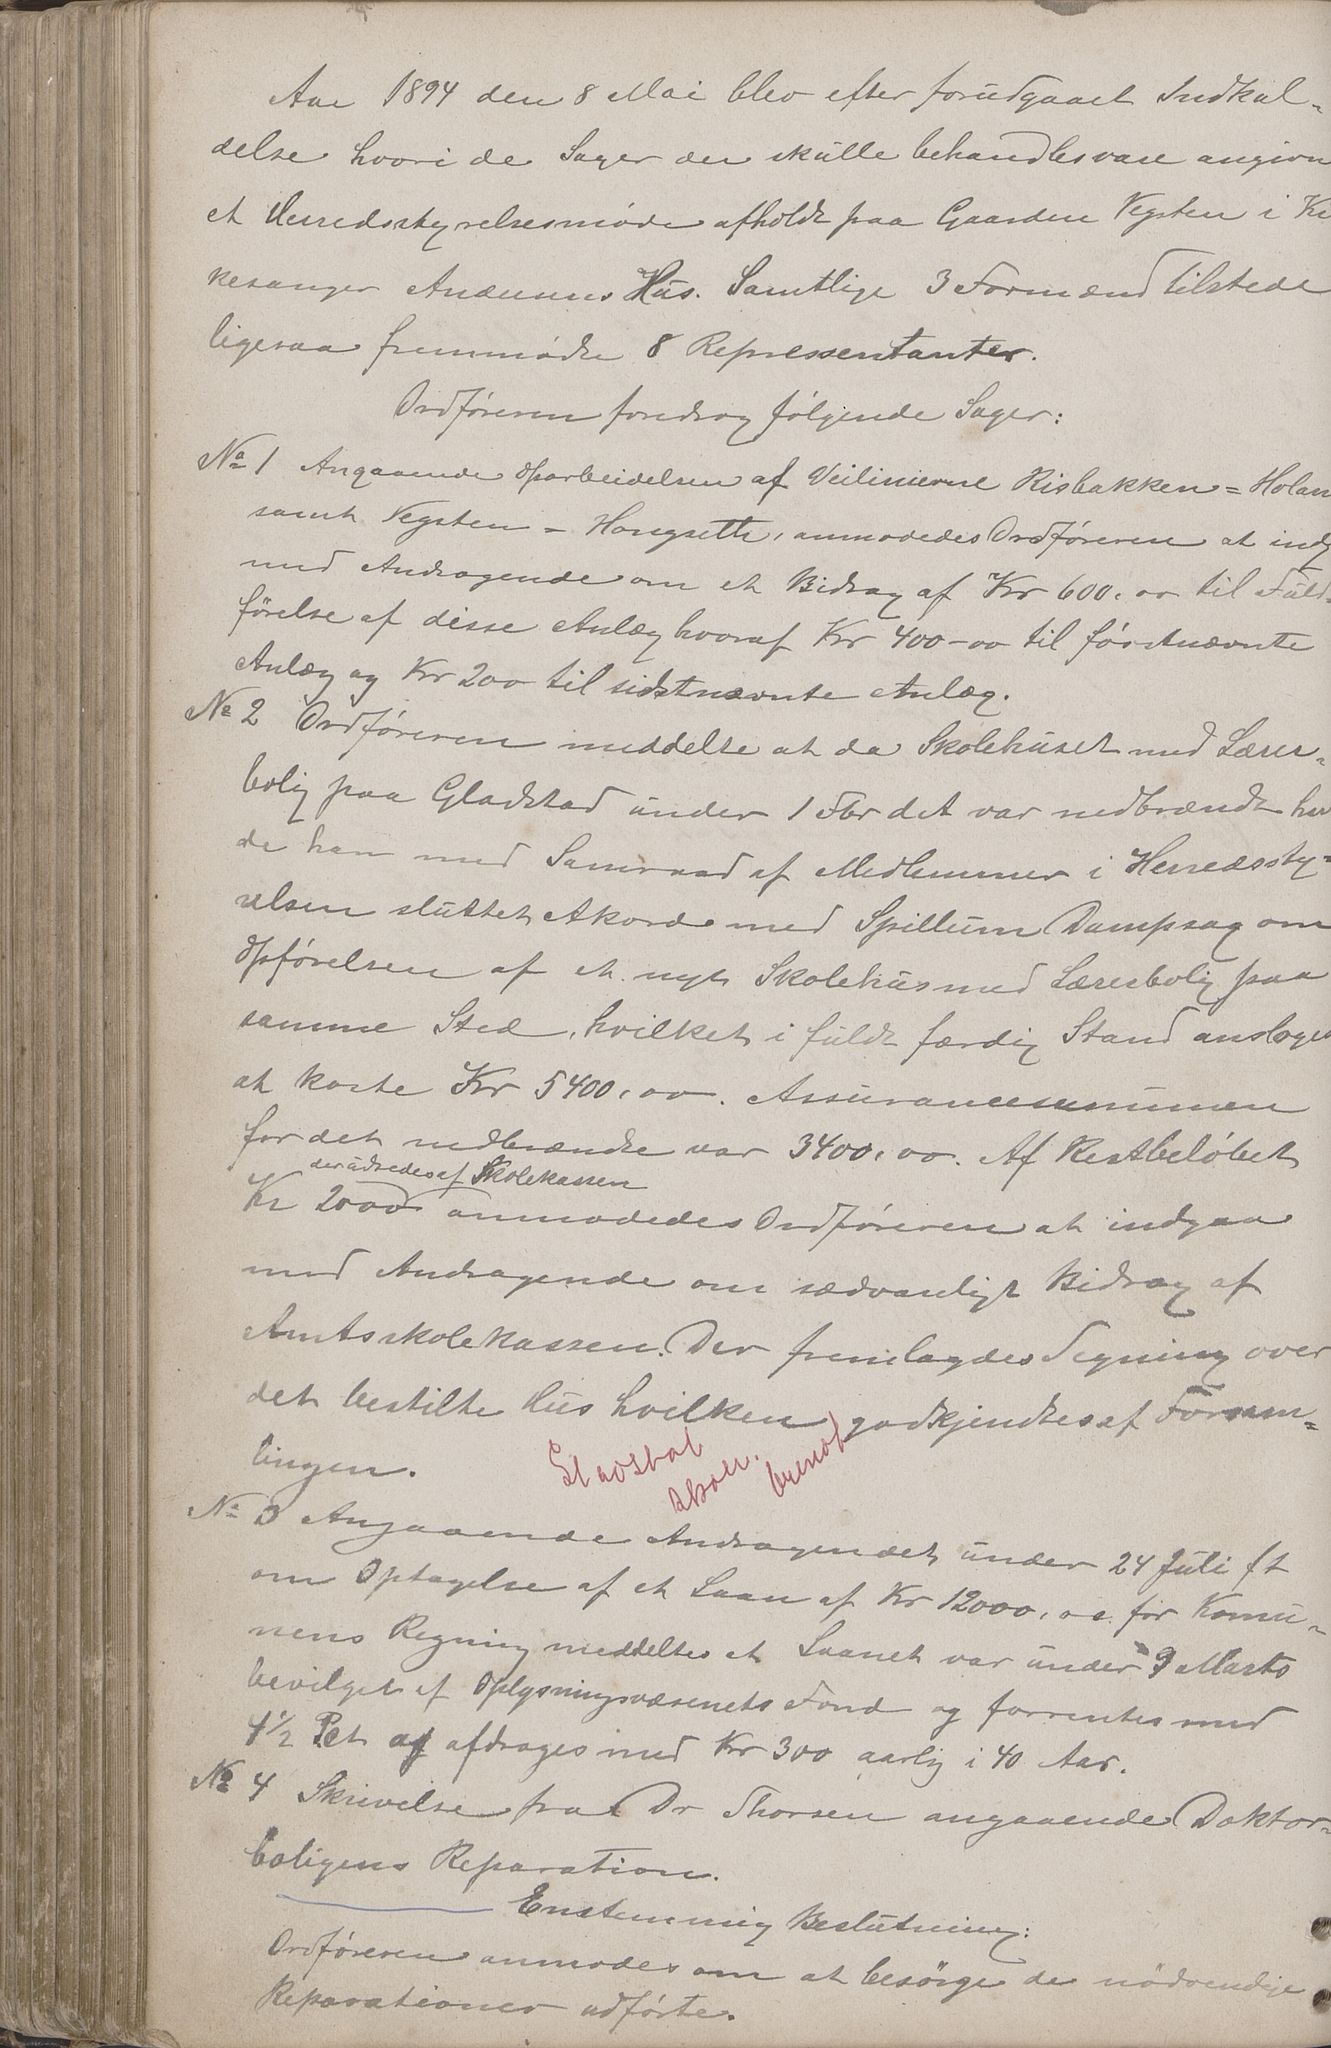 Aar 1894 den 8 Mai blev efter forudgaaet Indkal-
delse hvori de Sager der skulle behandles vare angivn
et Herredsstyrelsesmøde afholdt paa Gaarden Vegsten i
Andersens Hus. Samtlige 3 Formænd tilstede
ligesaa fremmødte 8 Repressentanter.
Ordføreren foredrog følgende Sager:
No 1 Angaaende Oparbeidelsen af Veilinierne Risbakken = Holan
samt Vegsten - Hongseth, anmodedes Ordføreren at indg
med Andragende om et Bidrag af Kr 600,00 til Fuld-
førelse af disse Anlæg hvoraf Kr 400-00 til førstnævnte
Anlæg og Kr 200 til sidstnævnte Anlæg.
No 2 Ordføreren meddelte at da Skolehuset med Lærer-
bolig paa Gladstad under 1 Fbr det var nedbrændt hav
de han med Samraad af Medlemmer i Herredssty=
relsen sluttet Akord med Spillum Dampsag om
Opførelsen af et nyt Skolehus med Lærerbolig paa
samme Sted, hvilket i fuldt færdig Stand ansloges
at koste Kr 5400,00. Assurancesummen
for det nedbrændte var 3400,00. Af Restbeløbet
der udredes af Skolekassen
Kr 2000 anmodedes Ordføreren at indgaa
med Andragende om sædvanligt Bidrag af
Amtsskolekassen. Der fremlagdes Tegning over
det bestilte Hus hvilken godkjendtes af Forsam=
lingen.
Gladstad
skole.
brændt
No 3 Angaaende Andragendet under 24 Juli f t
om Optagelse af et Laan af Kr 12000,00 for Komu-
nens Regning meddeltes at Laanet var under 9 Marts
bevilget af Oplysningsvæsenets Fond og forrentes med
4 1/2 Pct og afdrages med Kr 300 aarlig i 40 Aar.
No 4 Skrivelse fra Dr Thorsen angaaende Doktor-
boligens Reparation.
Enstemmig Beslutning:
Ordføreren anmodes om at besørge de nödvendige
Reparationer udførte.